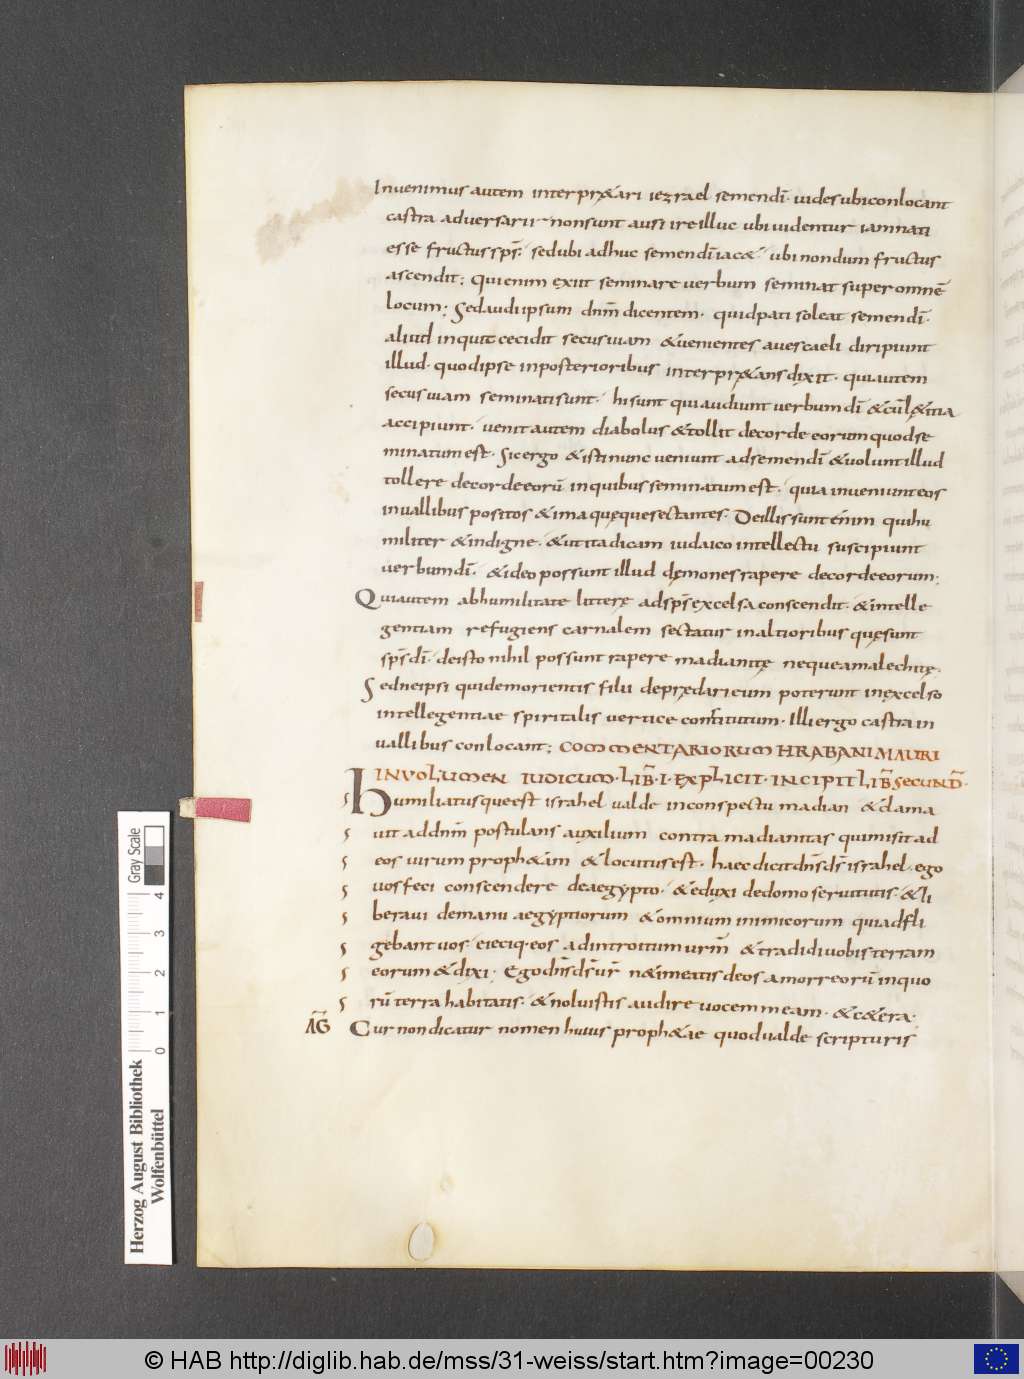 Invenimus autem interpr&ari iezrael semendī· uides ubi conlocant
castra adversarii· non sunt ausi ire illuc ubi uidentur iam nati
esse fructus sps̄· sed ubi adhuc semen dī iac& ubi nondum fructus
ascendit; Qui enim exiit seminare verbum seminat super omnē
locum; Sed audi ipsum dnm̄ dicentem· quid pati soleat semen dī·
aliud inquit cecidit secus uiam &venientes aves caeli diripiunt
illud· quod ipse in posterioribus interpr&ans dixit· qui autem
secus uiam seminati sunt· hi sunt qui audiunt verbum dī
accipiunt· venit autem diabolus &tollit de corde eorum quod se
minatum est· Sic ergo &isti nunc veniunt ad semen dī &volunt illud
tollere de corde eorū in quibus seminatum est· quia inveniunt eos
in vallibus positos &ima quęque sectantes· De illis sunt enim qui hu
militer &indigne· &ut ita dicam iudaico intellectu suscipiunt
verbum dī· &ideo possunt illud dęmones rapere de corde eorum;
Qui autem ab humilitate litterę ad sps̄ excelsa conscendit· &intelle
gentiam refugiens carnalem sectatur in altioribus quę sunt
sps̄ dī· de isto nihil possunt rapere madianitę neque amalechitę·
Sed ne ipsi quidem orientis filii deprędari eum poterunt in excelso
intellegentiae spiritalis vertice constitutum· Illi ergo castra in
vallibus conlocant; COMMENTARIORUM HRABANI MAURI
IN VOLUMEN IUDICUM· LIB̄· I· EXPLICIT· INCIPIT LIB̄ SECUND̄·
Humiliatusque est israhel valde in conspectu madian &clama
vit ad dnm̄ postulans auxilium contra madianitas qui misit ad
eos virum proph&am &locutus est· haec dicit dns̄ ds̄ israhel· ego
vos feci conscendere de aegypto· &eduxi de domo servitutis· &li
beravi de manu aegyptiorum &omnium inimicorum qui adfli
gebant vos· eieciq· eos ad introitum urm̄ &tradidi vobis terram
eorum &dixi· Ego dns̄ ds̄ ur̄ ne timeatis deos amorreorū in quo
rū terra habitatis· &noluistis audire vocem meam· &c&era·
AḠ Cur non dicatur nomen huius proph&ae quod valde scripturis
Gray Scale
4
3
2
1
0
Herzog August Bibliothek
Wolfenbüttel
© HAB http://diglib.hab.de/mss/31-weiss/start.htm?image=00230